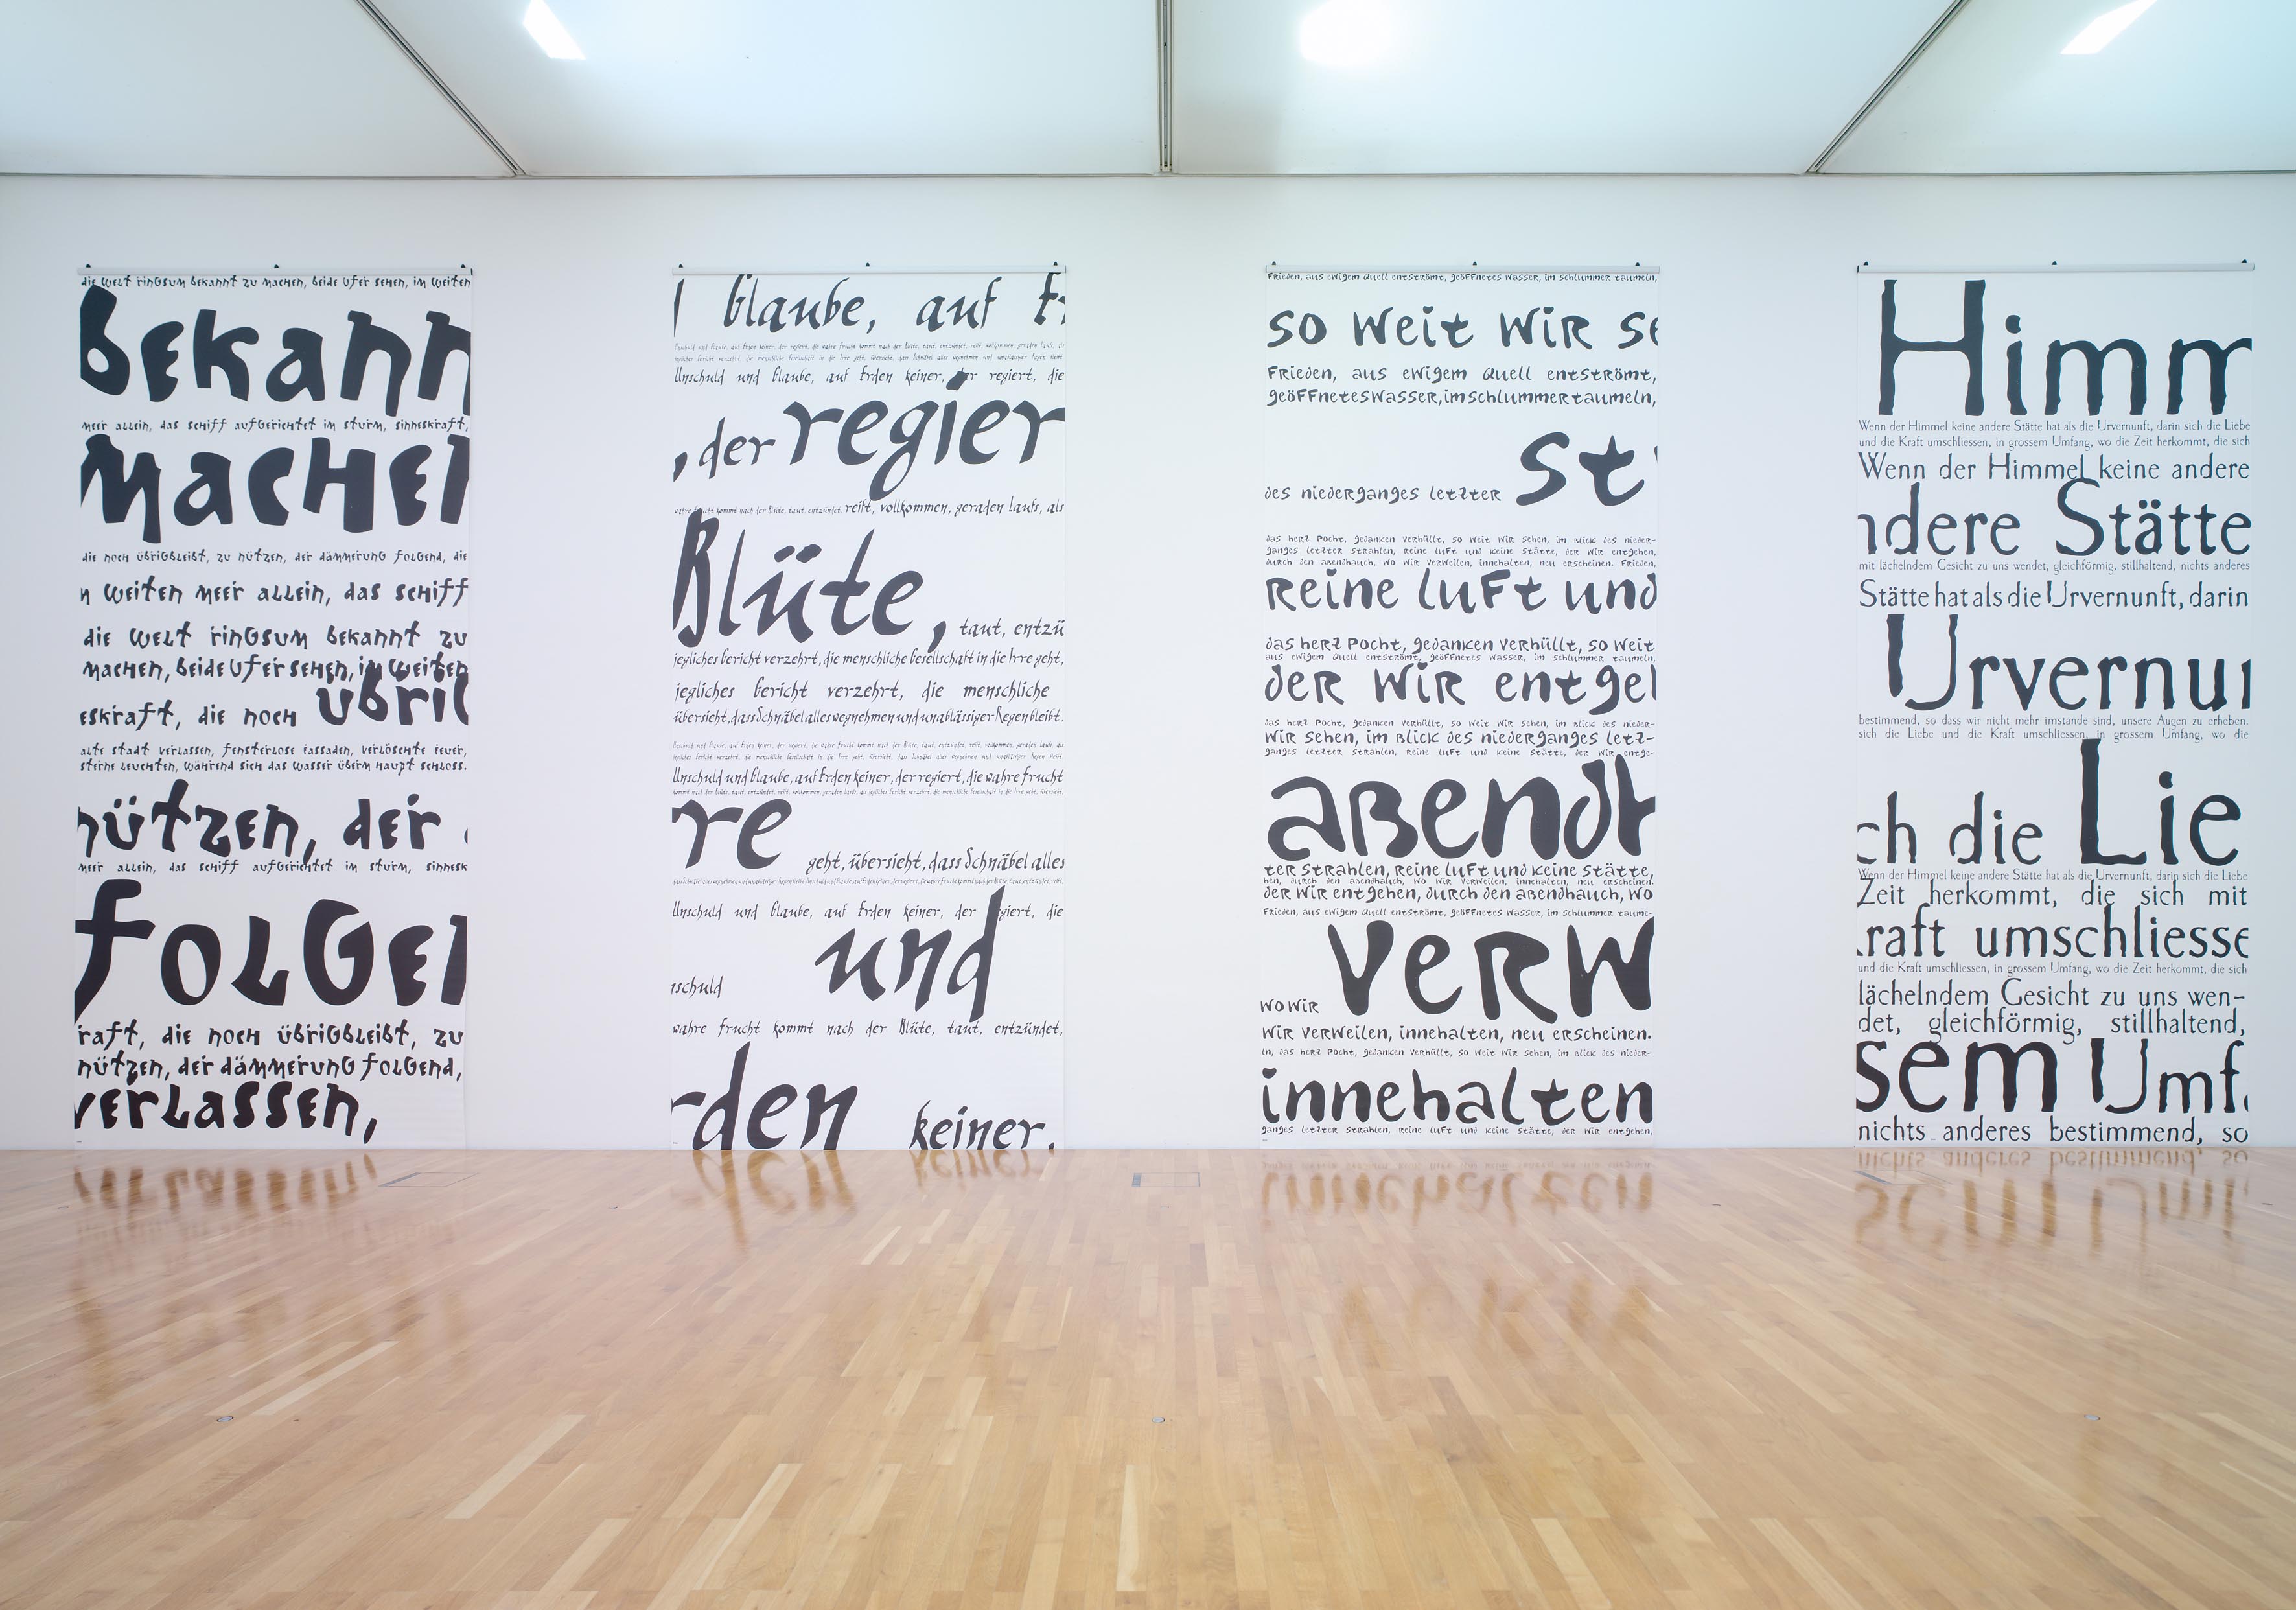 die welt ringsum bekannt zu machen, beide ufer sehen, im weiten
bekann
meer allein, das schiff aufgerichtet im sturm, sinneskraft,
machen
die noch übrigbleibt, zu nützen, der dämmerung folgend, die
n weiten meer allein, das schiff
die welt ringsum bekannt zu
machen, beide ufer sehen, im weiten
eskraft, die noch übrig
alte stadt verlassen, fensterlose fassaden, verlöschte feuer,
sterne leuchten, während sich das wasser überm haupt schloss.
nützen, der
meer allein, das schiff aufgerichtet im sturm, sinnesk
folgen
raft, die noch übrigbleibt, zu
nützen, der dämmerung folgend,
verlassen,
Glaube, auf Er
Unschuld und Glaube, auf Erden keiner, der regiert, die wahre Frucht kommt nach der Blüte, taut, entzündet, reift, vollkommen, geraden Laufs, als
jegliches Gericht verzehrt, die menschliche Gesellschaft in die Irre geht, übersieht, dass Schnäbel alles wegnehmen und unablässiger Regen bleibt.
Unschuld und Glaube, auf Erden keiner, der regiert, die
, der regier
wahre Frucht kommt nach der Blüte, taut, entzündet, reift, vollkommen, geraden Laufs, als
Blüte, taut, entzü
jegliches Gericht verzehrt, die menschliche Gesellschaft in die Irre geht,
jegliches Gericht verzehrt, die menschliche
übersieht, dass Schnäbel alles wegnehmen und unablässiger Regen bleibt.
Unschuld und Glaube, auf Erden keiner, der regiert, die wahre Frucht kommt nach der Blüte, taut, entzündet, reift, vollkommen, geraden Laufs, als
jegliches Gericht verzehrt, die menschliche Gesellschaft in die Irre geht, übersieht, dass Schnäbel alles wegnehmen und unablässiger Regen bleibt.
Unschuld und Glaube, auf Erden keiner, der regiert, die wahre Frucht
kommt nach der Blüte, taut, entzündet, reift, vollkommen, geraden Laufs, als jegliches Gericht verzehrt, die menschliche Gesellschaft in die Irre geht, übersieht,
re geht, übersieht, dass Schnäbel alles
dass Schnäbel alles wegnehmen und unablässiger Regen bleibt. Unschuld und Glaube, auf Erden keiner, der regiert, die wahre Frucht kommt nach der Blüte, taut, entzündet, reift,
Unschuld und Glaube, auf Erden keiner, der regiert, die
nschuld und
wahre Frucht kommt nach der Blüte, taut, entzündet,
rden keiner.
Frieden, aus ewigem Quell entströmt, geöffnetes Wasser, im Schlummer taumeln,
so weit wir se
Frieden, aus ewigem Quell entströmt,
geöffnetes Wasser, im Schlummer taumeln,
des Niederganges letzter St
das Herz pocht, Gedanken verhüllt, so weit wir sehen, im Blick des Nieder-
ganges letzter Strahlen, reine Luft und keine Stätte, der wir entgehen,
durch den Abendhauch, wo wir verweilen, innehalten, neu erscheinen. Frieden,
Reine Luft und
das Herz pocht, Gedanken verhüllt, so weit
aus ewigem Quell entströmt, geöffnetes Wasser, im Schlummer taumeln,
der wir entgeh
das Herz pocht, Gedanken verhüllt, so weit wir sehen, im Blick des Nieder-
wir sehen, im Blick des Niederganges letz-
ganges letzter Strahlen, reine Luft und keine Stätte, der wir entge-
Abendh
ter Strahlen, reine Luft und keine Stätte,
hen, durch den Abendhauch, wo wir verweilen, innehalten, neu erscheinen.
der wir entgehen, durch den Abendhauch, wo
Frieden, aus ewigem Quell entströmt, geöffnetes Wasser, im Schlummer taume-
wo wir verw
wir verweilen, innehalten, neu erscheinen.
ln, das Herz pocht, Gedanken verhüllt, so weit wir sehen, im Blick des Nieder-
innehalten
ganges letzter Strahlen, reine Luft und keine Stätte, der wir entgehen,
Himm
Wenn der Himmel keine andere Stätte hat als die Urvernunft, darin sich die Liebe
und die Kraft umschliessen, in grossem Umfang, wo die Zeit herkommt, die sich
Wenn der Himmel keine andere
ndere Stätte
mit lächelndem Gesicht zu uns wendet, gleichförmig, stillhaltend, nichts anderes
Stätte hat als die Urvernunft, darin
Urvernun
bestimmend, so dass wir nicht mehr imstande sind, unsere Augen zu erheben.
sich die Liebe und die Kraft umschliessen, in grossem Umfang, wo die
ch die Lie
Wenn der Himmel keine andere Stätte hat als die Urvernunft, darin sich die Liebe
Zeit herkommt, die sich mit
raft umschliesse
und die Kraft umschliessen, in grossem Umfang, wo die Zeit herkommt, die sich
lächelndem Gesicht zu uns wen-
det, gleichförmig, stillhaltend,
sem Umf
nichts anderes bestimmend, so